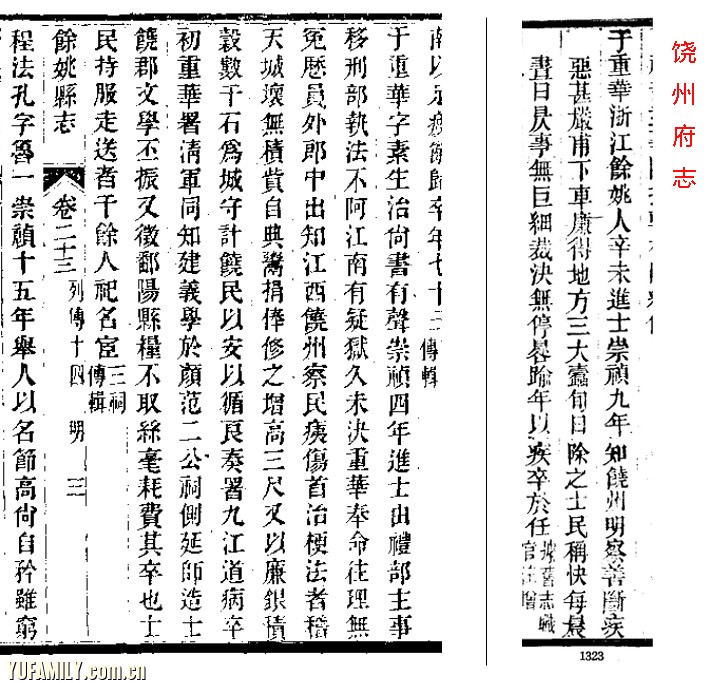 饶州府志
于重華浙江餘姚人辛未進士崇禎九年知饒州明察善斷疾
惡甚嚴甫下車廉得地方三大蠹旬日除之士民稱快每晨
晝日昃事無巨細裁決無停晷踰年以疾卒於任
1323
于重華字素生治尚書有聲崇禎四年進士由禮部主事
移刑部執法不阿江南有疑獄久未決重華奉命往理無
冤歷員外郎中出知江西饒州察民痍傷首治梗法者稽
天城壞無積貲自典鬻捐俸修之增高三尺又以廉銀積
穀數千石爲城守計饒民以安以循良奏署九江道病卒
初重華署清軍同知建義學於顏范二公祠側延師造士
饒郡文學丕振又徵鄱陽縣糧不取絲毫耗費其卒也士
民持服走送者千餘人祀名宦三祠傳輯
餘姚縣志 卷二十三 列傳十四 明 三
程法孔字魯一崇禎十五年舉人以名節高尚自矜雖窮
YUFAMILY.com.cn